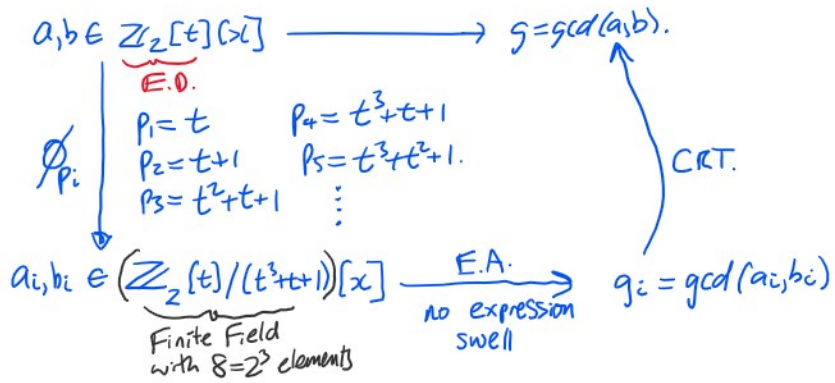 a,b ∈ ℤ₂[t][x] → g=gcd(a,b).
E.D.
p₁= t p₄= t³+t+1
φpᵢ p₂= t+1 p₅= t³+t²+1.
p₃= t²+t+1 ⋮
CRT.
aᵢ,bᵢ ∈ (ℤ₂[t]/(t³+t+1))[x] E.A. → gᵢ = gcd(aᵢ,bᵢ)
no expression
swell
Finite Field
with 8=2³ elements